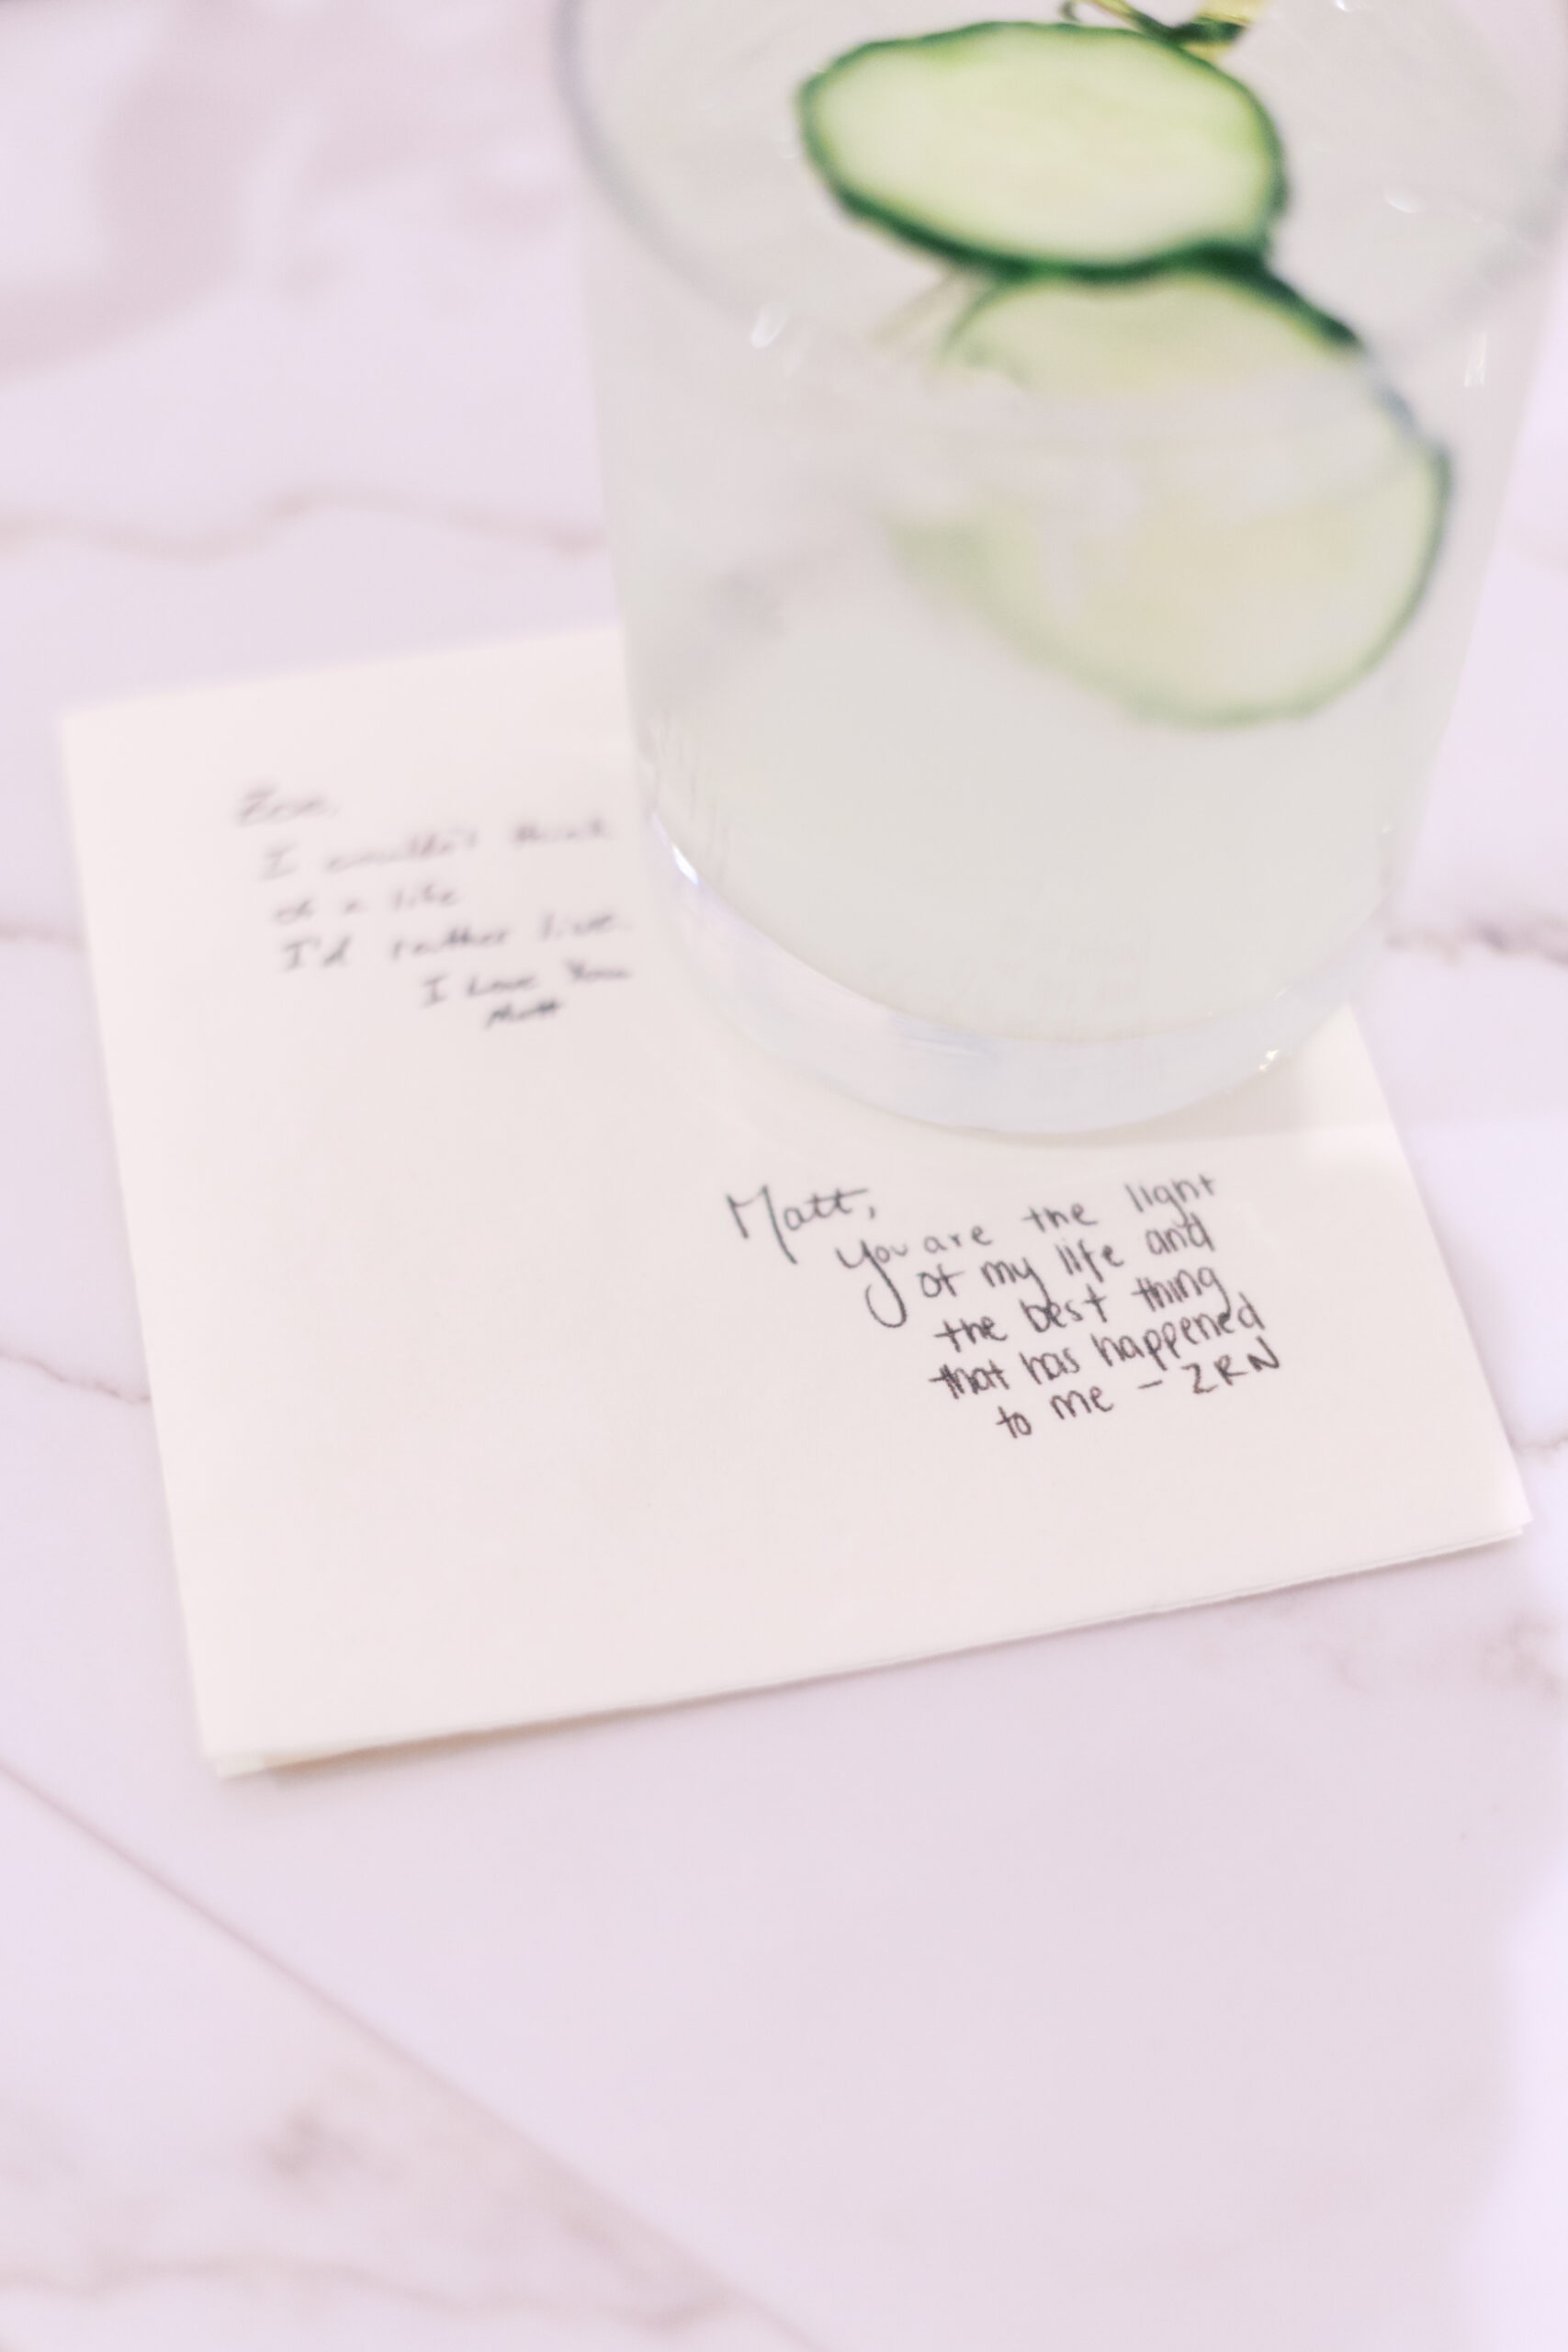 Zoe,
I couldn't think
of a life
I'd rather live.
I Love You
Matt
Matt,
you are the light
of my life and
the best thing
that has happened
to me - ZRN